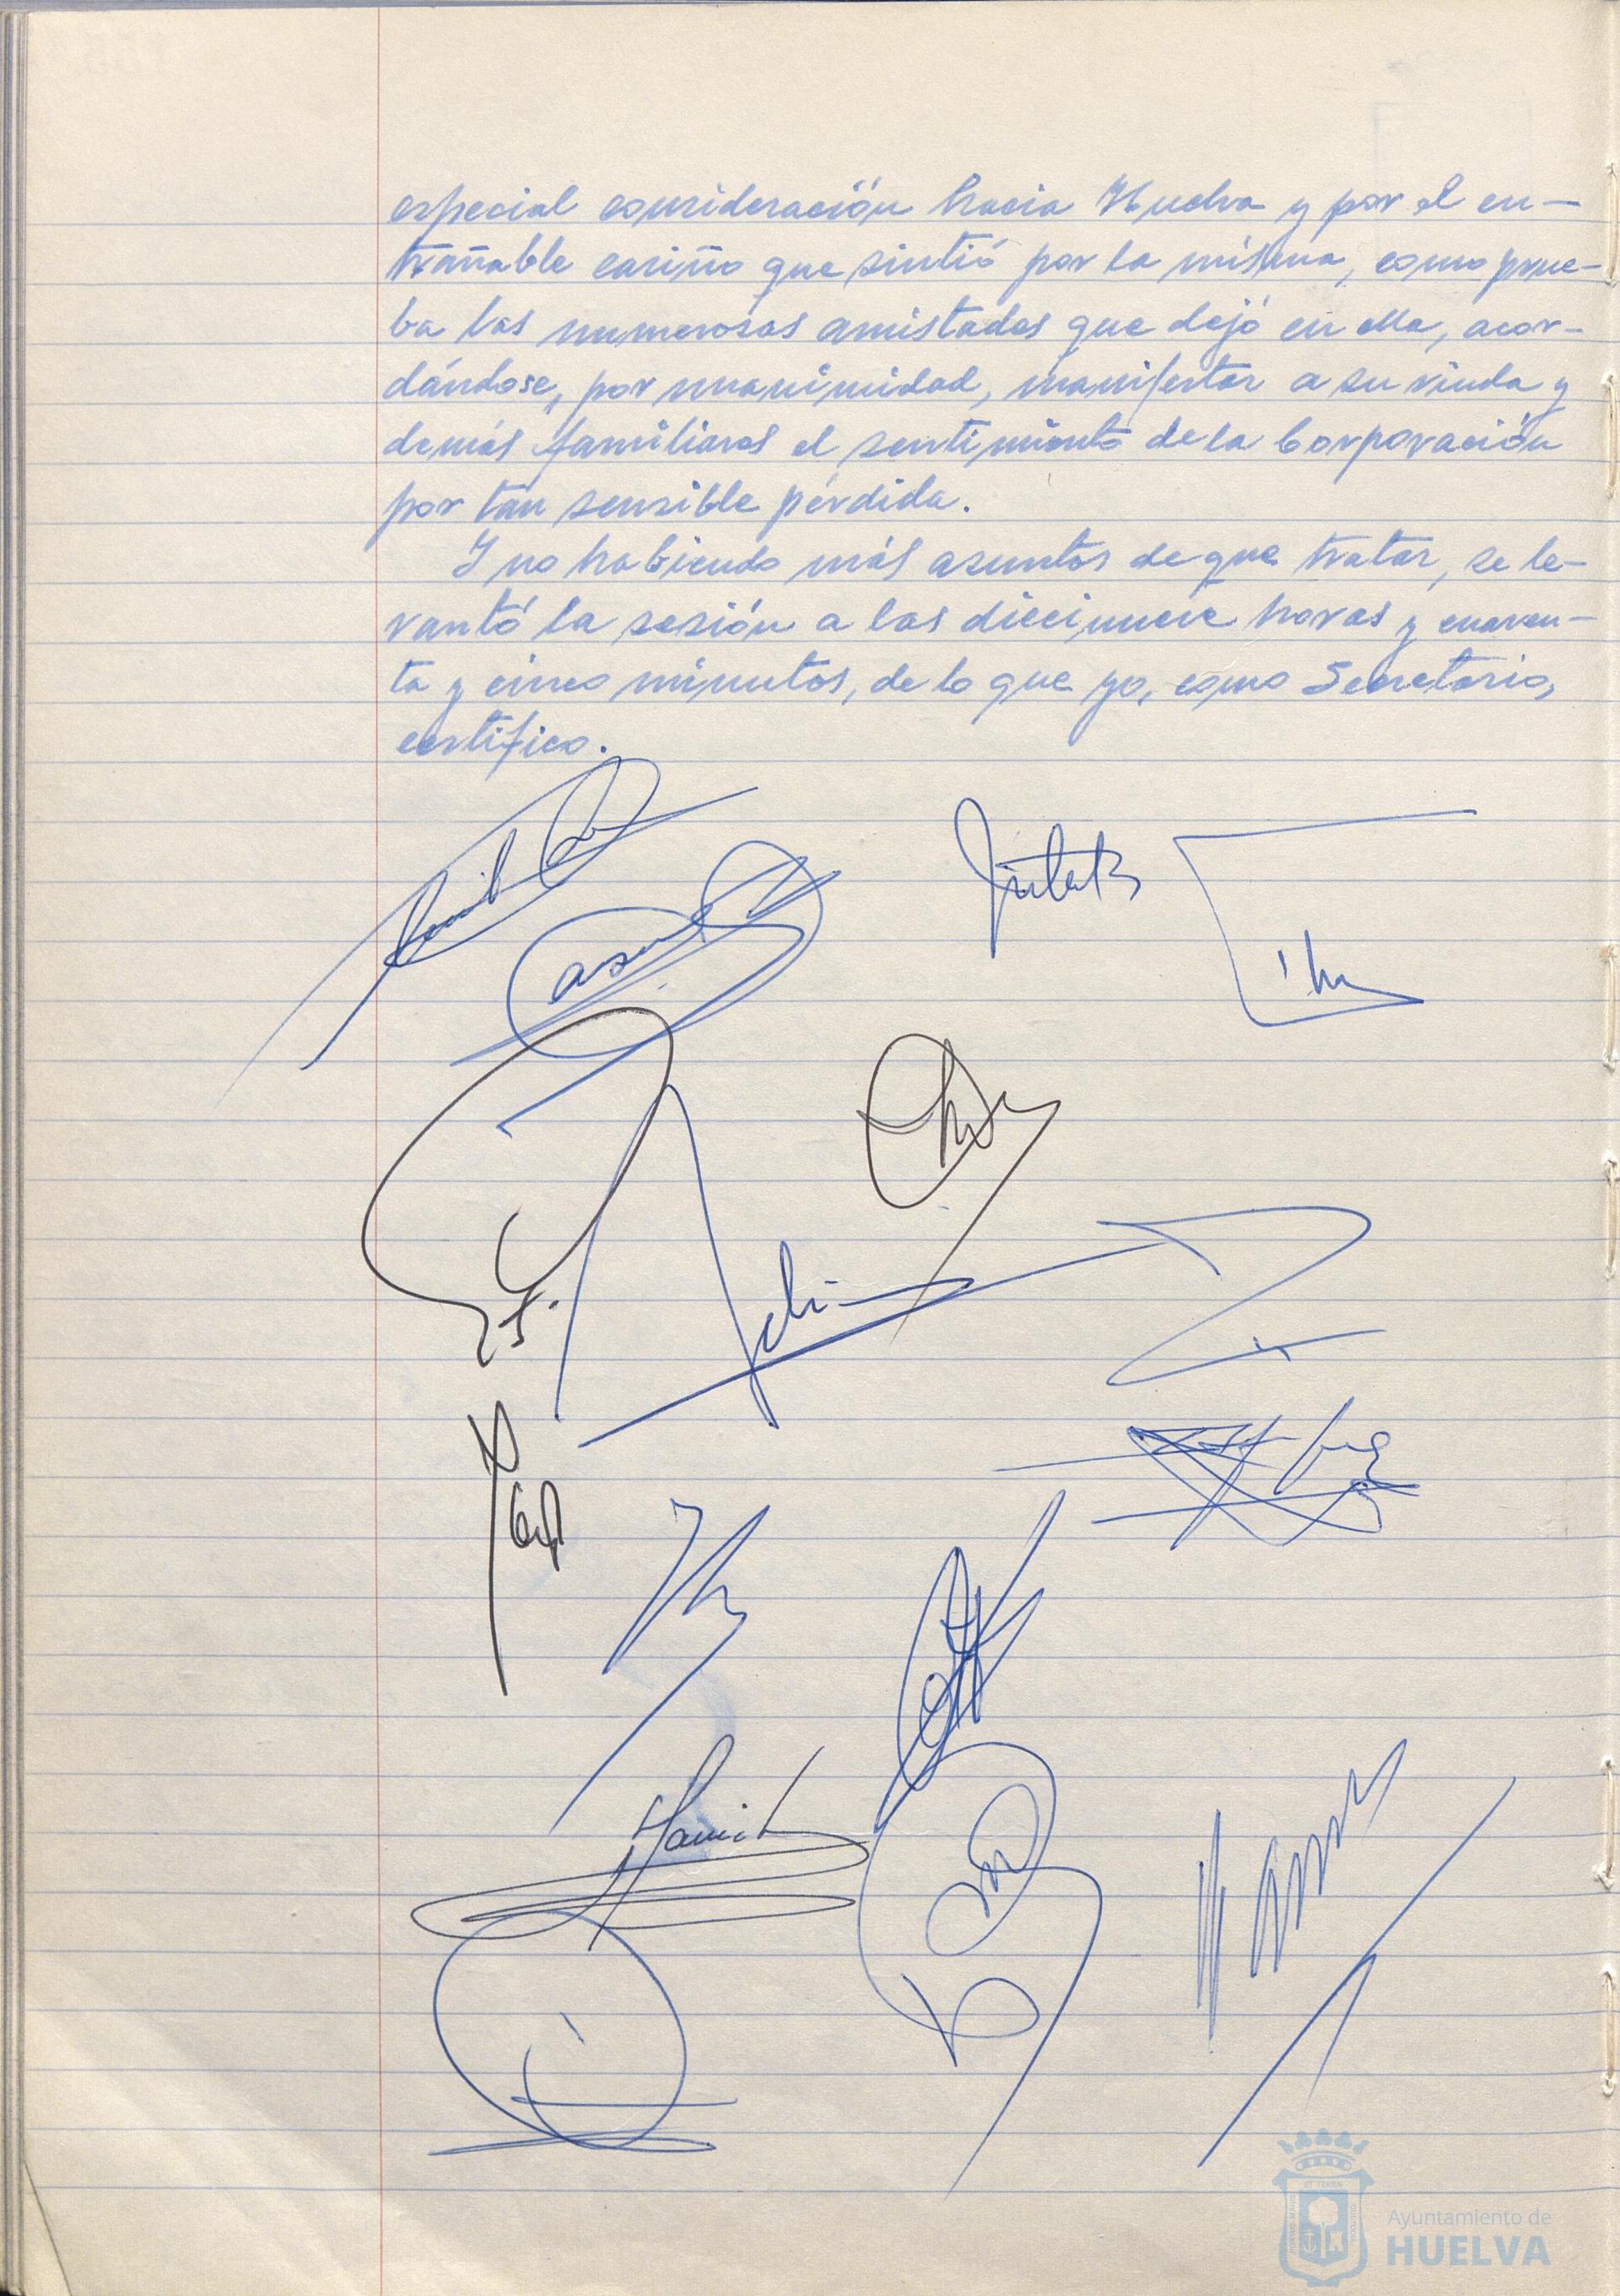 especial consideración hacia Huelva y por el en-
trañable cariño que sintió por la misma, como prue-
ba las numerosas amistades que dejó en ella, acor-
dándose, por unanimidad, manifestar a su viuda y
demás familiares el sentimiento de la Corporación
por tan sensible pérdida.
Y no habiendo más asuntos de que tratar, se le-
vantó la sesión a las diecinueve horas y cuaren-
ta y cinco minutos, de lo que yo, como Secretario,
certifico.
Ayuntamiento de
HUELVA